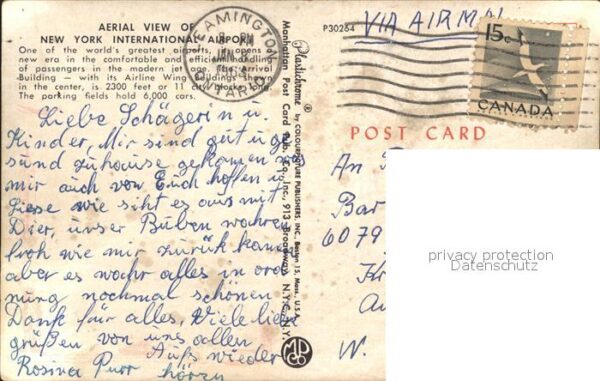 AERIAL VIEW OF
NEW YORK INTERNATIONAL AIRPORT
One of the world's greatest airports, it opens a
new era in the comfortable and efficient handling
of passengers in the modern jet age. The Arrival
Building — with its Airline Wing Buildings shown
in the center, is 2300 feet or 11 city blocks long.
The parking fields hold 6,000 cars.
Liebe Schägerin u.
Kinder, Mir sind gut u ge
sund zuhause gekomen
mir auch von Euch hoffen u.
Liese wie siht es aus mit
Dier, unser Buben wahren
froh wie mir zurück kamen
aber es wahr alles in ord
nung nochmal schönen
Dank für alles, Viele liebe
grüßen von uns allen
Aufs wieder
Rosina Purr hören
LEAMINGTON
ONTARIO
Plastichrome ® by COLOURPICTURE PUBLISHERS, INC. Boston 15, Mass., U.S.A.
Manhattan Post Card Pub. Co., Inc., 913 Broadway, N.Y.C., N.Y.
P30264
VIA AIR MAIL
15c
CANADA
POST CARD
An
Bar
6079
W.
privacy protection
Datenschutz